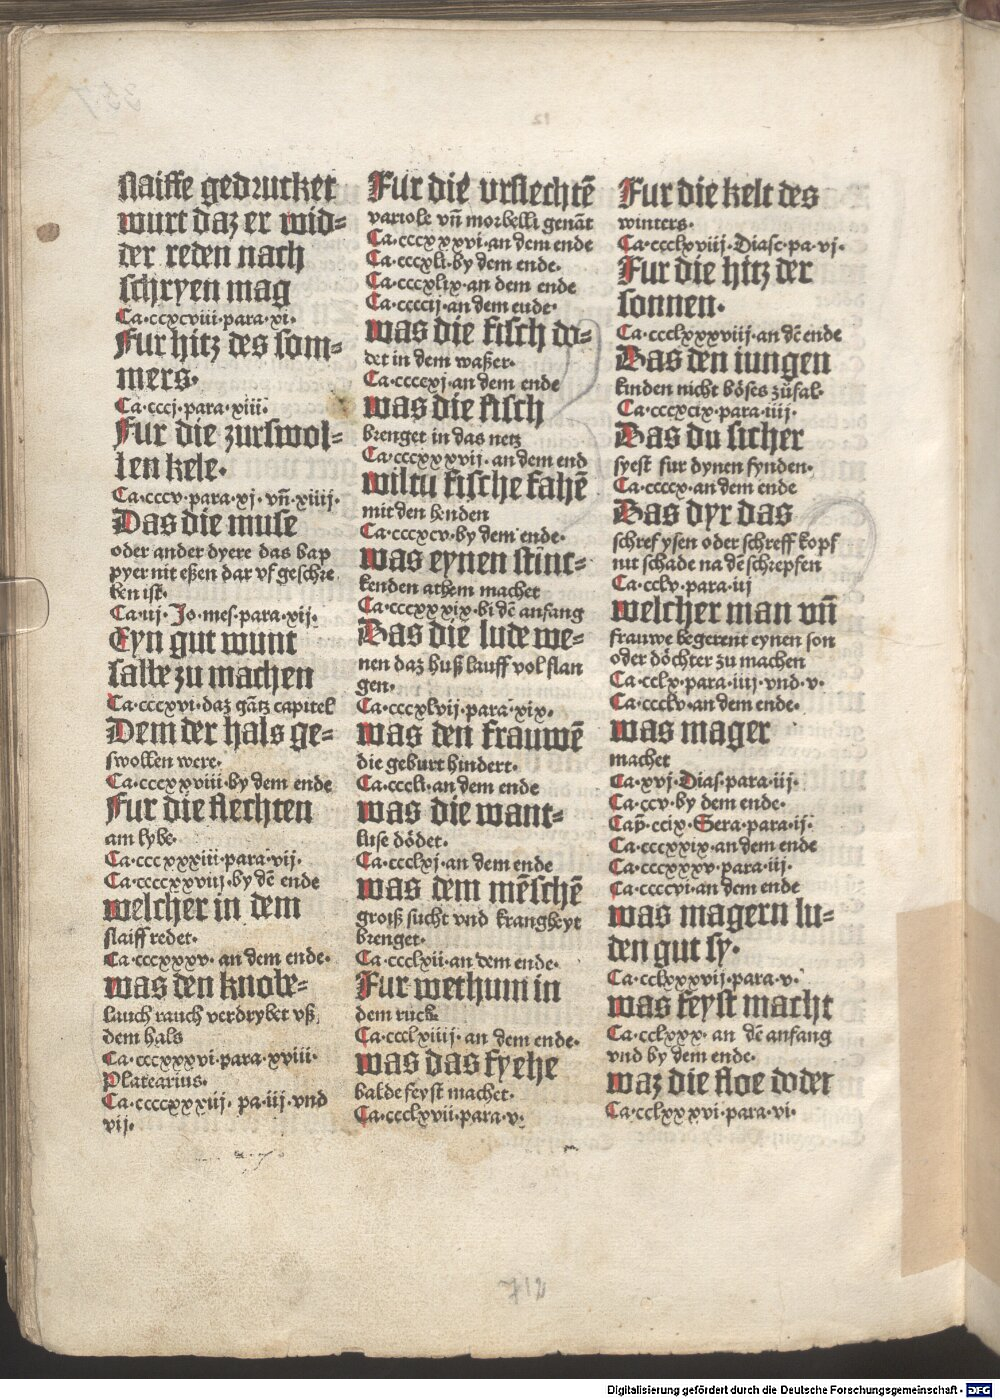 slaiffe gedrucket
wurt daz er wid=
der reden nach
schryen mag
Ca·ccxcviii·para·xi·
Fur hitz des som=
mers·
Ca·cccj·para·xiii·
Fur die zurswol=
len kele·
Ca·cccv·para·xj·vñ·xiiij·
Das die muse
oder ander dyere das bap
pyer nit eßen dar vf geschre
ben ist·
Ca·iij·Jo·mes·para·xij·
Eyn gut wunt
salbe zu machen
Ca·cccxvi·daz gātz capitel
Dem der hals ge=
swollen were·
Ca·cccxxviii·by dem ende
Fur die flechten
am lybe·
Ca·cccxxxiii·para·vij·
Ca·ccccxxviij·by dē ende
welcher in dem
slaiff redet·
Ca·cccxxxv·an dem ende·
was den knobe=
lauch rauch verdrybet vß
dem hals
Ca·cccxxxvi·para·xviii·
Platearius·
Ca·ccccxxxiij·pa·iij·vnd
vij·
Fur die vrslechtē
variole vñ morbelli genāt
Ca·cccxxxvi·an dem ende
Ca·cccxli·by dem ende·
Ca·cccxlix·an dem ende
Ca·ccccij·an dem ende·
was die fisch do=
det in dem waßer·
Ca·ccccxj·an dem ende
was die fisch
brenget in das netz
Ca·cccxxxvij·an dem end
wiltu fische fahē
mit den henden
Ca·cccxcv·by dem ende·
was eynen stinc=
kenden athem machet
Ca·cccxxxix·bi dē anfang
Das die lude we=
nen daz huß lauff vol slan
gen·
Ca·cccxlvij·para·xix·
was den frauwē
die geburt hindert·
Ca·cccli·an dem ende
was die want=
luse dödet·
Ca·ccclxj·an dem ende
was dem mēschē
groiß sucht vnd krangheyt
brenget·
Ca·ccclxii·an dem ende·
Fur wethum in
dem ruck·
Ca·ccclxiiij·an dem ende·
was das fyehe
balde feyst machet·
Ca·ccclxvii·para·v·
Fur die kelt des
winters·
Ca·ccclxviij·Diasc·pa·vj·
Fur die hitz der
sonnen·
Ca·ccclxxxviij·an dē ende
Das den iungen
kinden nicht böses zůfal·
Ca·cccxcix·para·iiij·
Das du sicher
syest fur dynen fynden·
Ca·ccccx·an dem ende
Das dyr das
schref ysen oder schreff kopf
nit schade na dē schrepfen
Ca·cclv·para·iij
welcher man vñ
frauwe begerent eynen son
oder döchter zu machen
Ca·cclv·para·iiij·vnd·v·
Ca·ccclv·an dem ende·
was mager
machet
Ca·xvj·Dias·para·iij·
Ca·ccv·by dem ende·
Cap̄·ccix·Sera·para·ij·
Ca·cccxxix·an dem ende
Ca·cccxxxv·para·iij·
Ca·ccccvi·an dem ende
was magern lu=
den gut sy·
Ca·cclxxxvij·para·v·
was feyst macht
Ca·cclxxx·an dē anfang
vnd by dem ende·
waz die floe dodet
Ca·cclxxxvi·para·vi·
712
Digitalisierung gefördert durch die Deutsche Forschungsgemeinschaft - DFG